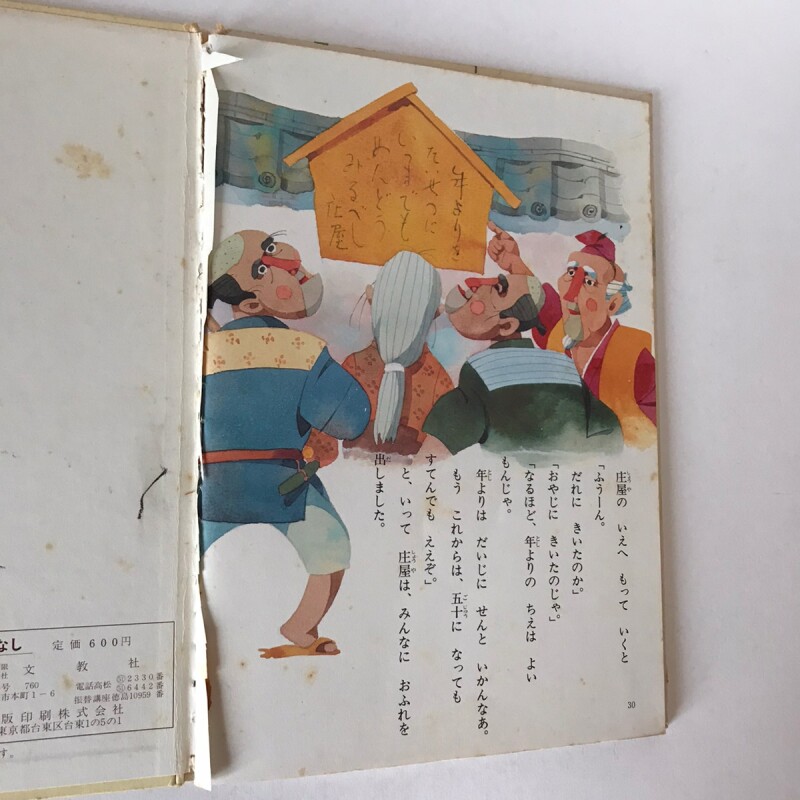 年よりを
たいせつに
いつまでも
めんどう
みるべし
庄屋
庄屋の いえへ もって いくと
「ふうーん。
だれに きいたのか。」
「おやじに きいたのじゃ。」
「なるほど、年よりの ちえは よい
もんじゃ。
年よりは だいじに せんと いかんなあ。
もう これからは、五十に なっても
すてんでも ええぞ。」
と、いって 庄屋は、みんなに おふれを
出しました。
30
なし 定価 600円
文教社
号 760 電話高松 2330番
市本町1-6 6442番
振替講座徳島10959番
版印刷株式会社
東京都台東区台東1の5の1
す。